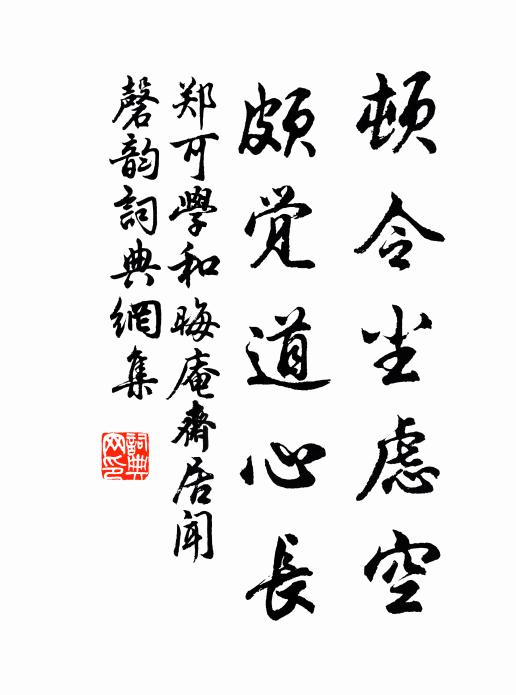 顿令尘虑空
颇觉道心長
郑可學和晦庵齋居聞
磬韵詞典網集
詞典网印